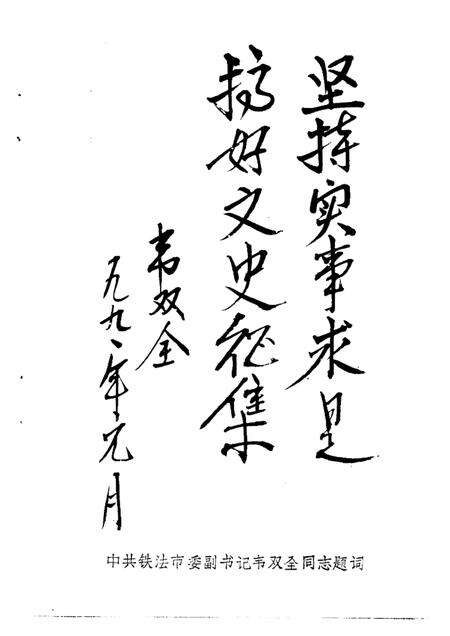 坚持实事求是
搞好文史征集
韦双全
一九九一年元月
中共铁法市委副书记韦双全同志题词